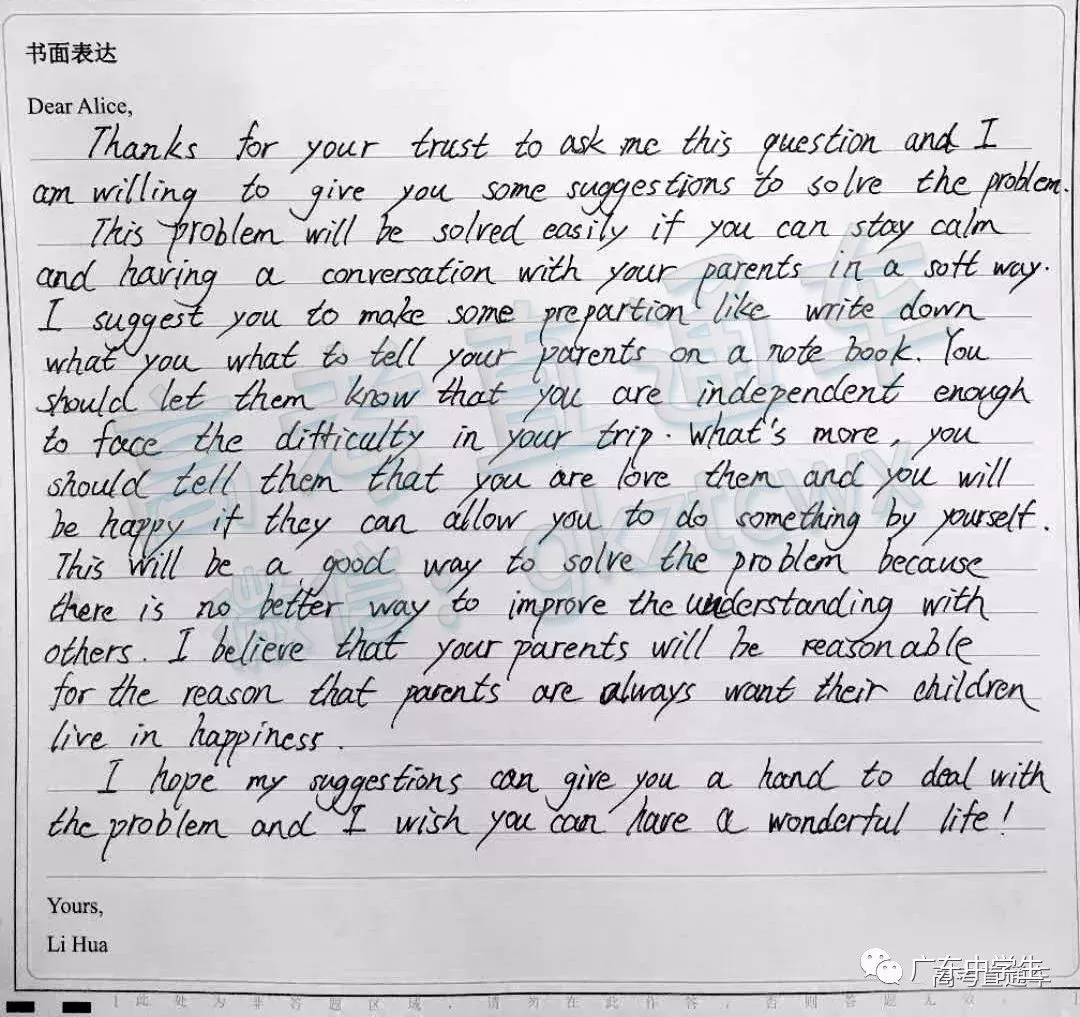 书面表达
Dear Alice,
Thanks for your trust to ask me this question and I
am willing to give you some suggestions to solve the problem.
This problem will be solved easily if you can stay calm
and having a conversation with your parents in a soft way.
I suggest you to make some prepartion like write down
what you what to tell your parents on a note book. You
should let them know that you are independent enough
to face the difficulty in your trip. What's more, you
should tell them that you are love them and you will
be happy if they can allow you to do something by yourself.
This will be a good way to solve the problem because
there is no better way to improve the understanding with
others. I believe that your parents will be reasonable
for the reason that parents are always want their children
live in happiness.
I hope my suggestions can give you a hand to deal with
the problem and I wish you can have a wonderful life!
Yours,
Li Hua
高考直通车
微信：gkztcwx
广东中学生
高考直通车
此处为非答题区域，请勿在此作答，否则答题无效